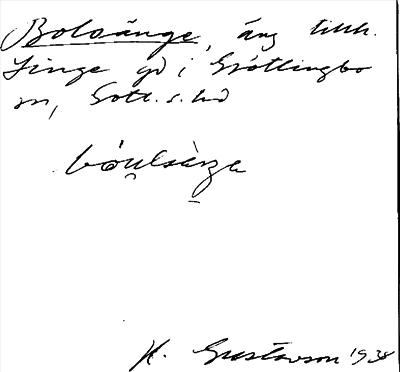 Bolsänge, äng tillh.
Singe gd i Gröttlingbo
sn, Gotl. s. hd
K. Gustavson 1938